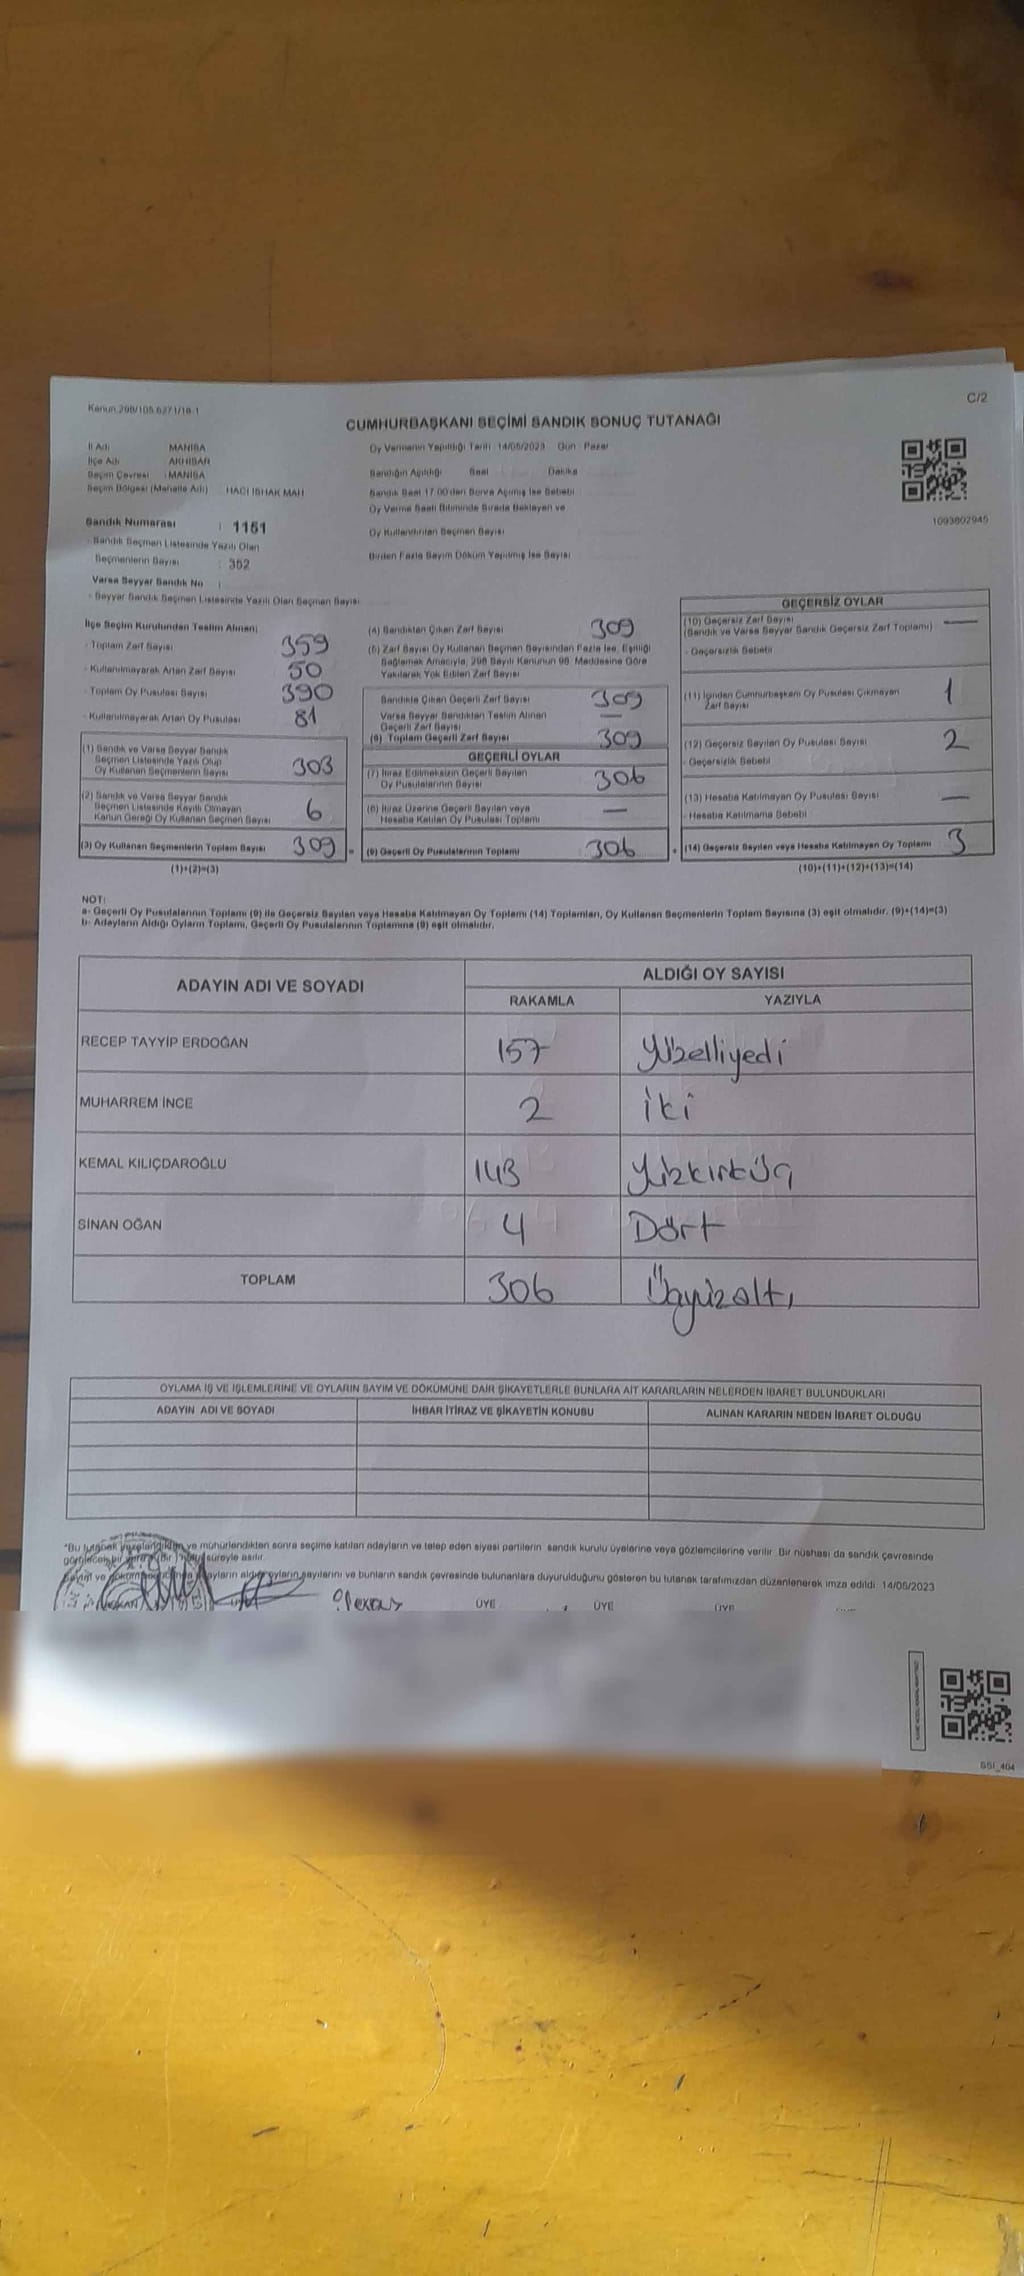 Kanun.298/105.6271/18-1
C/2
CUMHURBAŞKANI SEÇİMİ SANDIK SONUÇ TUTANAĞI
İl Adı MANİSA
İlçe Adı AKHİSAR
Seçim Çevresi : MANİSA
Seçim Bölgesi (Mahalle Adı) : HACI İSHAK MAH
Sandık Numarası : 1151
- Sandık Seçmen Listesinde Yazılı Olan
Seçmenlerin Sayısı : 352
Varsa Seyyar Sandık No :
- Seyyar Sandık Seçmen Listesinde Yazılı Olan Seçmen Sayısı
Oy Vermenin Yapıldığı Tarih 14/05/2023 Gün Pazar
Sandığın Açıldığı Saat Dakika
Sandık Saat 17.00'den Sonra Açılmış İse Sebebi
Oy Verme Saati Bitiminde Sırada Bekleyen ve
Oy Kullandırılan Seçmen Sayısı
Birden Fazla Sayım Döküm Yapılmış İse Sayısı
1093802945
İlçe Seçim Kurulundan Teslim Alınan;
- Toplam Zarf Sayısı 359
- Kullanılmayarak Artan Zarf Sayısı 50
- Toplam Oy Pusulası Sayısı 390
- Kullanılmayarak Artan Oy Pusulası 81
(1) Sandık ve Varsa Seyyar Sandık
Seçmen Listesinde Yazılı Olup
Oy Kullanan Seçmenlerin Sayısı 303
(2) Sandık ve Varsa Seyyar Sandık
Seçmen Listesinde Kayıtlı Olmayan
Kanun Gereği Oy Kullanan Seçmen Sayısı 6
(3) Oy Kullanan Seçmenlerin Toplam Sayısı 309 =
(1)+(2)=(3)
(4) Sandıktan Çıkan Zarf Sayısı 309
(5) Zarf Sayısı Oy Kullanan Seçmen Sayısından Fazla İse, Eşitliği
Sağlamak Amacıyla, 298 Sayılı Kanunun 98. Maddesine Göre
Yakılarak Yok Edilen Zarf Sayısı
Sandıkta Çıkan Geçerli Zarf Sayısı 309
Varsa Seyyar Sandıktan Teslim Alınan
Geçerli Zarf Sayısı —
(6) Toplam Geçerli Zarf Sayısı 309
GEÇERLİ OYLAR
(7) İtiraz Edilmeksizin Geçerli Sayılan
Oy Pusulalarının Sayısı 306
(8) İtiraz Üzerine Geçerli Sayılan veya
Hesaba Katılan Oy Pusulası Toplamı —
(9) Geçerli Oy Pusulalarının Toplamı 306 +
GEÇERSİZ OYLAR
(10) Geçersiz Zarf Sayısı
(Sandık ve Varsa Seyyar Sandık Geçersiz Zarf Toplamı) —
- Geçersizlik Sebebi
(11) İçinden Cumhurbaşkanı Oy Pusulası Çıkmayan
Zarf Sayısı 1
(12) Geçersiz Sayılan Oy Pusulası Sayısı 2
- Geçersizlik Sebebi
(13) Hesaba Katılmayan Oy Pusulası Sayısı —
- Hesaba Katılmama Sebebi
(14) Geçersiz Sayılan veya Hesaba Katılmayan Oy Toplamı 3
(10)+(11)+(12)+(13)=(14)
NOT:
a- Geçerli Oy Pusulalarının Toplamı (9) ile Geçersiz Sayılan veya Hesaba Katılmayan Oy Toplamı (14) Toplamları, Oy Kullanan Seçmenlerin Toplam Sayısına (3) eşit olmalıdır. (9)+(14)=(3)
b- Adayların Aldığı Oyların Toplamı, Geçerli Oy Pusulalarının Toplamına (9) eşit olmalıdır.
ADAYIN ADI VE SOYADI
ALDIĞI OY SAYISI
RAKAMLA YAZIYLA
RECEP TAYYİP ERDOĞAN 157 Yüzelliyedi
MUHARREM İNCE 2 İki
KEMAL KILIÇDAROĞLU 143 Yüzkırküç
SİNAN OĞAN 4 Dört
TOPLAM 306 Üçyüzaltı
OYLAMA İŞ VE İŞLEMLERİNE VE OYLARIN SAYIM VE DÖKÜMÜNE DAİR ŞİKAYETLERLE BUNLARA AİT KARARLARIN NELERDEN İBARET BULUNDUKLARI
ADAYIN ADI VE SOYADI İHBAR İTİRAZ VE ŞİKAYETİN KONUSU ALINAN KARARIN NEDEN İBARET OLDUĞU
"Bu tutanak ve mühürlendikten sonra seçime katılan adayların ve talep eden siyasi partilerin sandık kurulu üyelerine veya gözlemcilerine verilir. Bir nüshası da sandık çevresinde
süreyle asılır.
Sayım ve adayların aldığı oyların sayılarını ve bunların sandık çevresinde bulunanlara duyurulduğunu gösteren bu tutanak tarafımızdan düzenlenerek imza edildi. 14/05/2023
ÜYE ÜYE ÜYE
SSİ_404